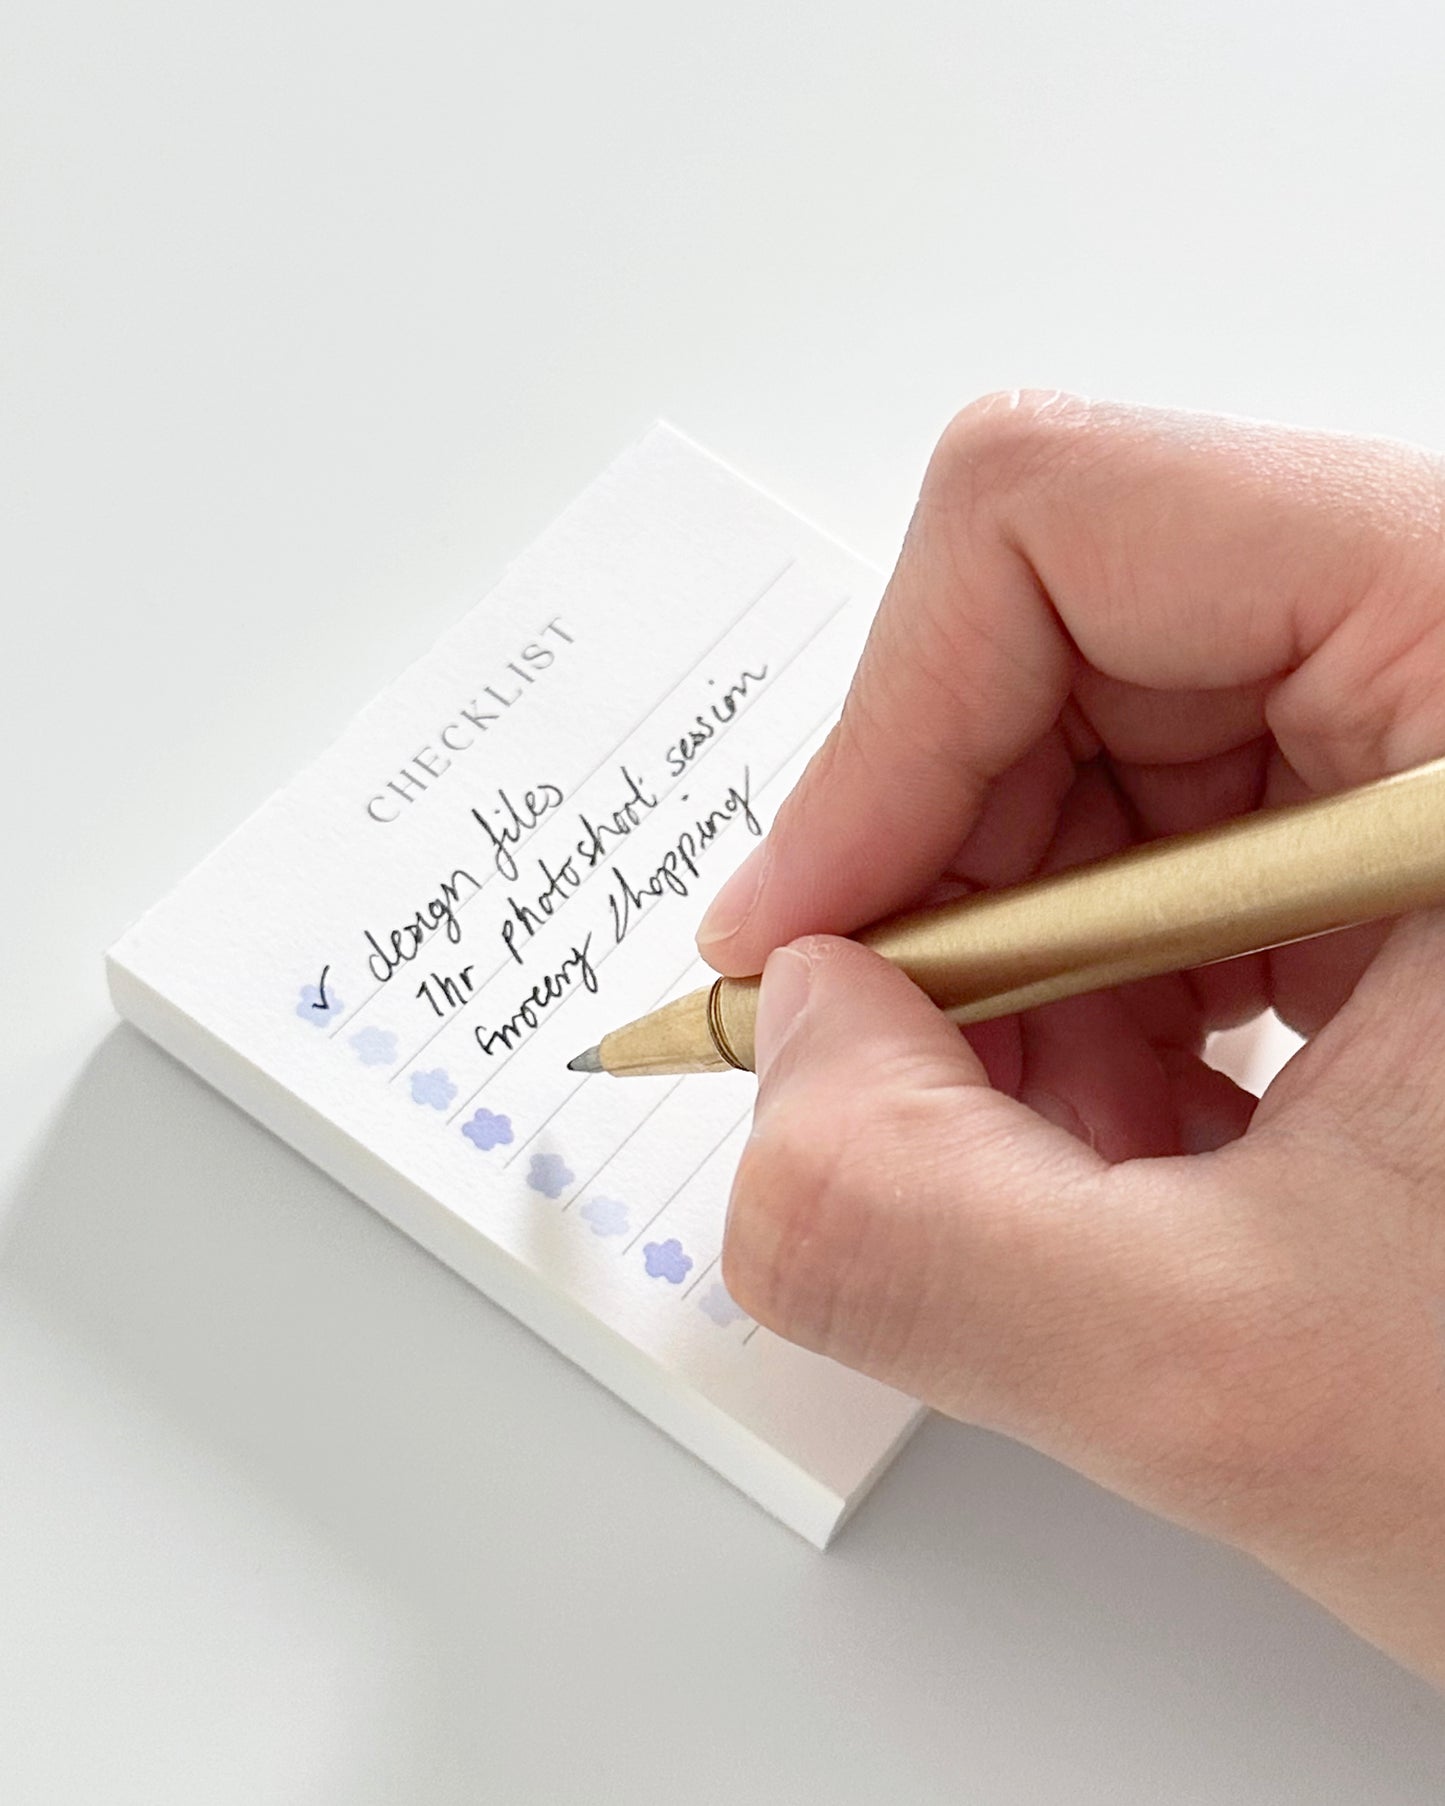 CHECKLIST
✓ design files
1hr photoshoot session
Grocery shopping